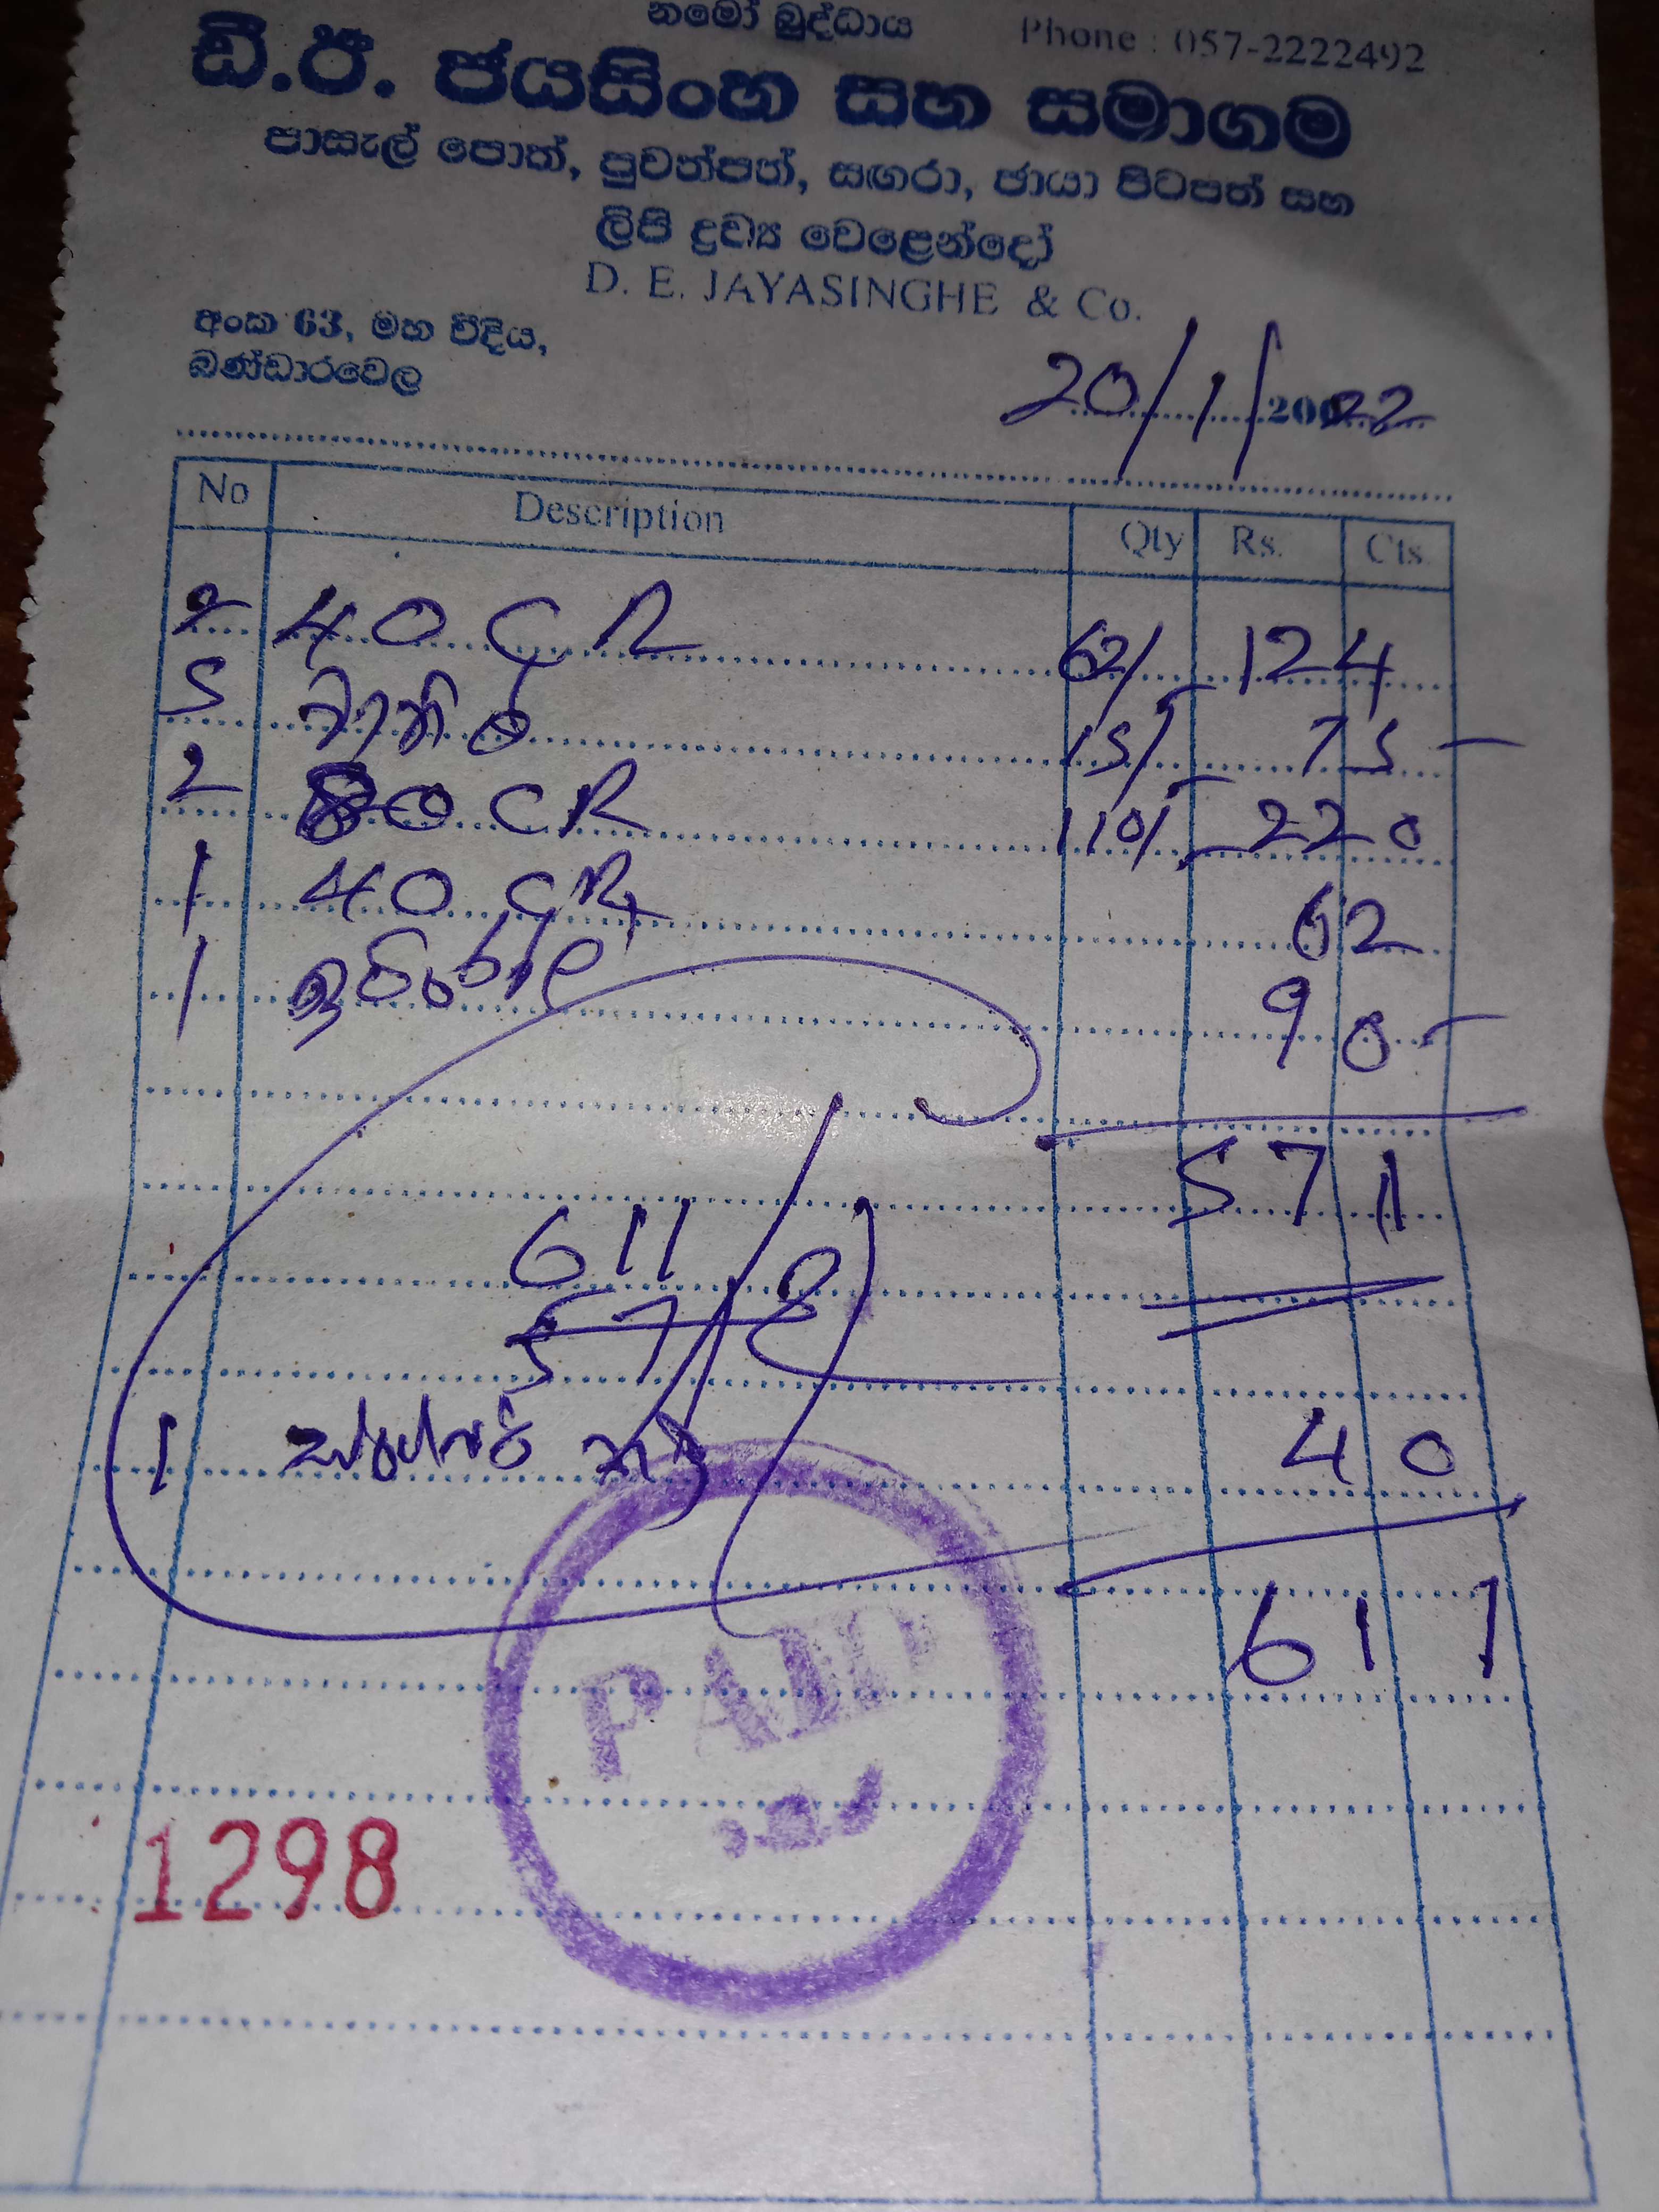 නමෝ බුද්ධාය Phone : 057-2222492
ඩී.ඊ. ජයසිංහ සහ සමාගම
පාසැල් පොත්, පුවත්පත්, සඟරා, ඡායා පිටපත් සහ
ලිපි ද්‍රව්‍ය වෙළෙන්දෝ
D. E. JAYASINGHE & Co.
අංක 63, මහ වීදිය,
බණ්ඩාරවෙල
20/1/2022
No Description Qty Rs. Cts.
2 40 CR 62/ 124
5 15/ 75
2 80 CR 110/ 220
1 40 CR 62
1 90
571
611
571
1 40
611
PAID
1298